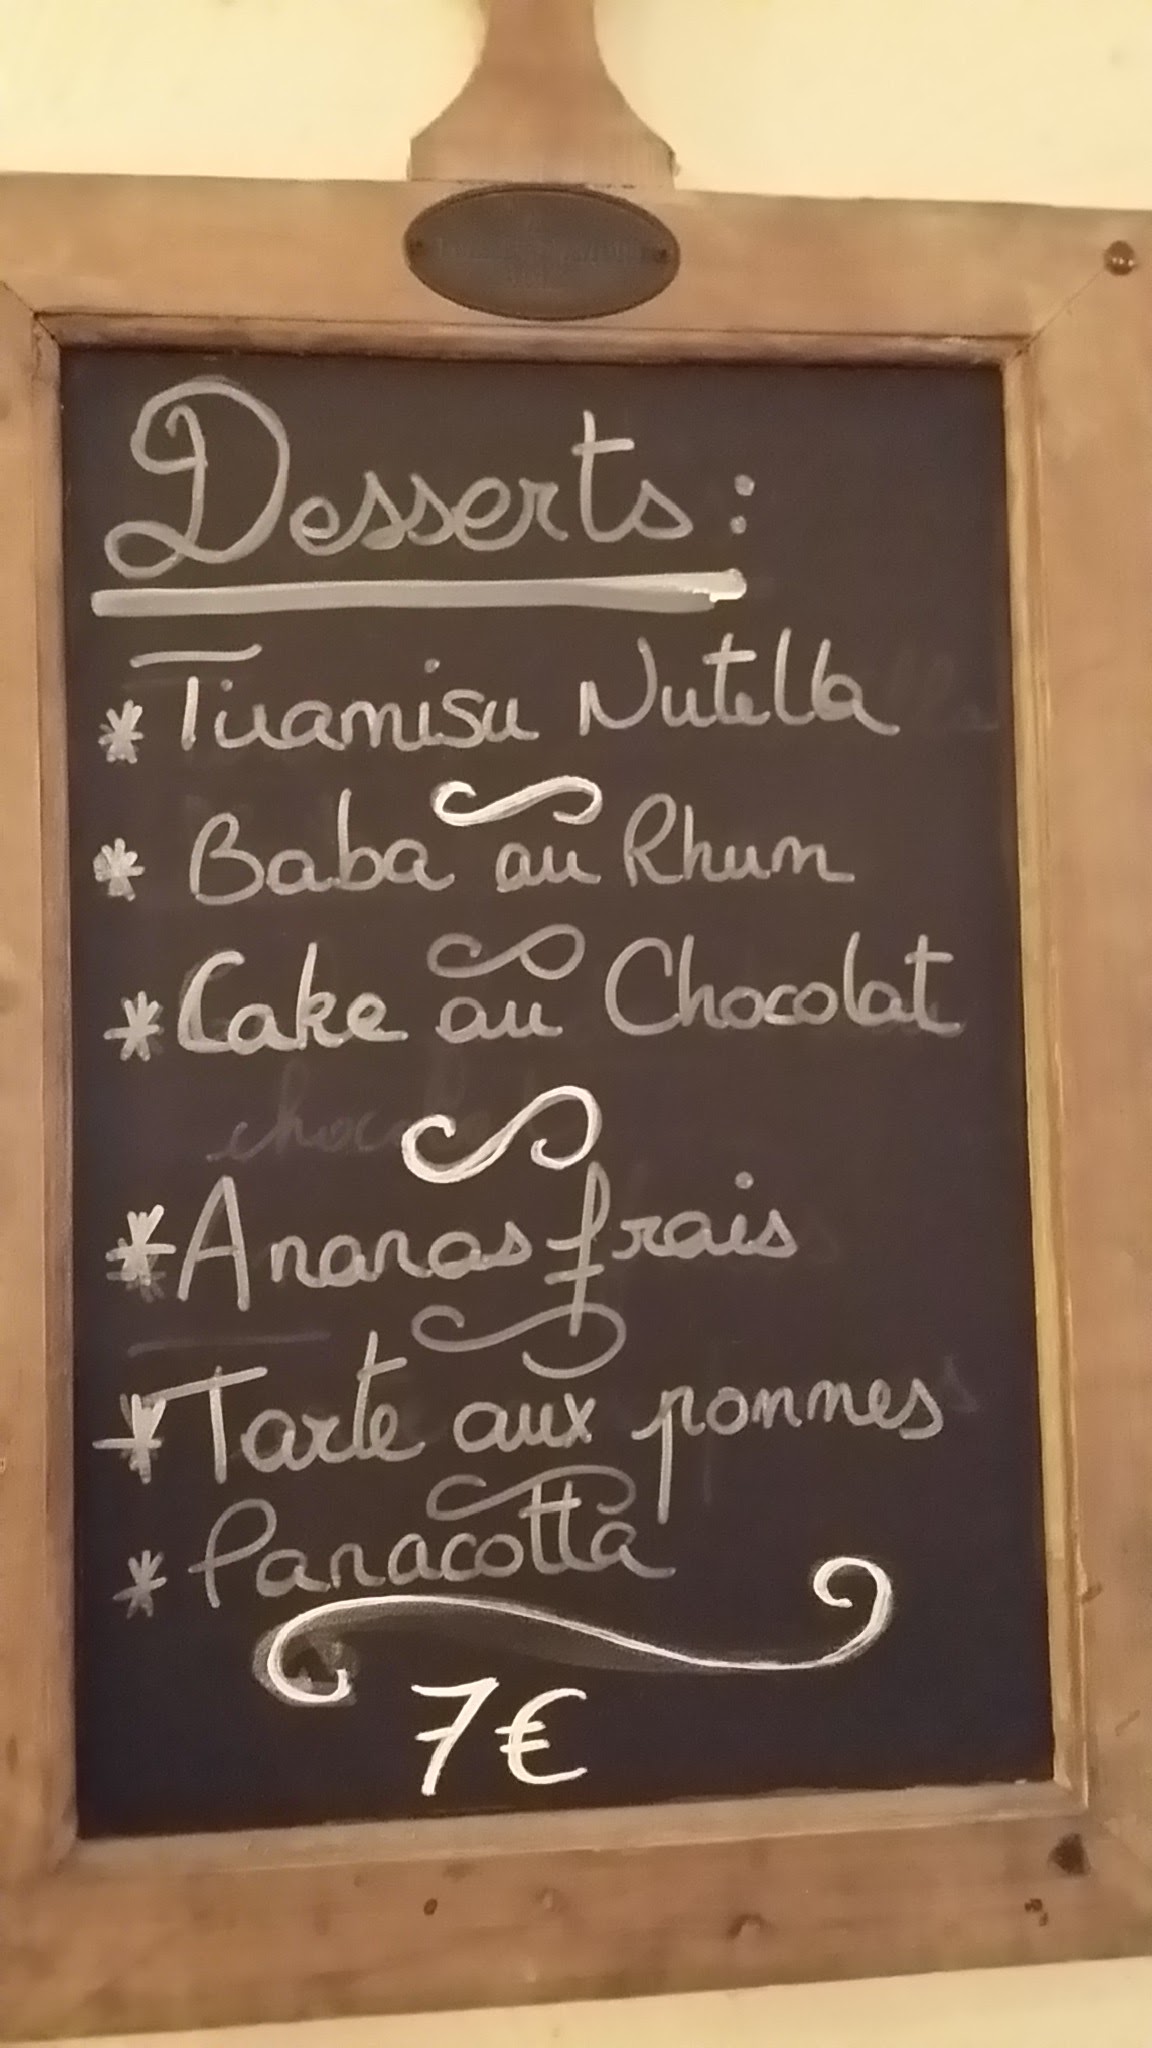 Desserts :
* Tiramisu Nutella
* Baba au Rhum
* Cake au Chocolat
* Ananas frais
* Tarte aux pommes
* Panacotta
7€